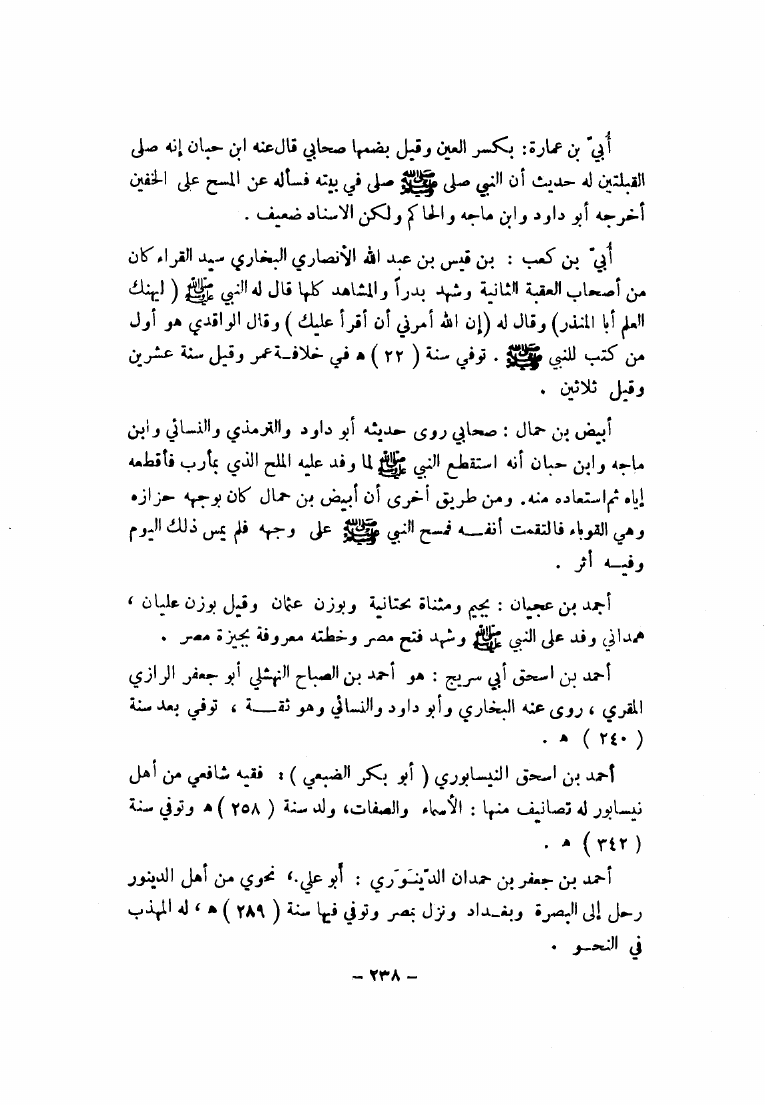 أُبيّ بن عمارة: بكسر العين وقيل بضمها صحابي قال عنه ابن حبان إنه صلى
القبلتين له حديث أن النبي صلى ﷺ صلى في بيته فسأله عن المسح على الخفين
أخرجه أبو داود وابن ماجه والحاكم ولكن الاسناد ضعيف .
أُبيّ بن كعب : بن قيس بن عبد الله الأنصاري البخاري سيد القراء كان
من أصحاب العقبة الثانية وشهد بدراً والمشاهد كلها قال له النبي ﷺ ( ليهنك
العلم أبا المنذر) وقال له (إن الله أمرني أن أقرأ عليك ) وقال الواقدي هو أول
من كتب للنبي ﷺ . توفي سنة ( ٢٢ ) ه في خلافـة عمر وقيل سنة عشرين
وقيل ثلاثين .
أبيض بن حمال : صحابي روى حديثه أبو داود والترمذي والنسائي وابن
ماجه وابن حبان أنه استقطع النبي ﷺ لما وفد عليه الملح الذي بمأرب فأقطعه
إياه ثم استعاده منه. ومن طريق أخرى أن أبيض بن حمال كان بوجهه حزازه
وهي القوباء فالتقمت أنفـــه فمسح النبي ﷺ على وجهه فلم يمس ذلك اليوم
وفيـــه أثر .
أحمد بن عجيان : بجيم ومثناة تحتانية وبوزن عثمان وقيل بوزن عليان ،
همداني وفد على النبي ﷺ وشهد فتح مصر وخطته معروفة بجيزة مصر .
أحمد بن اسحق أبي سريج : هو أحمد بن الصباح النهشلي أبو جعفر الرازي
المقري ، روى عنه البخاري وأبو داود والنسائي وهو ثقـــة ، توفي بعد سنة
( ٢٤٠ ) ه .
أحمد بن اسحق النيسابوري ( أبو بكر الضبعي ) : فقيه شافعي من أهل
نيسابور له تصانيف منها : الأسماء والصفات، ولد سنة ( ٢٥٨ ) ه وتوفي سنة
( ٣٤٢ ) ه .
أحمد بن جعفر بن حمدان الدّينَوَري : أبو علي.، نحوي من أهل الدينور
رحل إلى البصرة وبغـداد ونزل بمصر وتوفي فيها سنة ( ٢٨٩ ) ه ، له المهذب
في النحـو .
– ٢٣٨ –